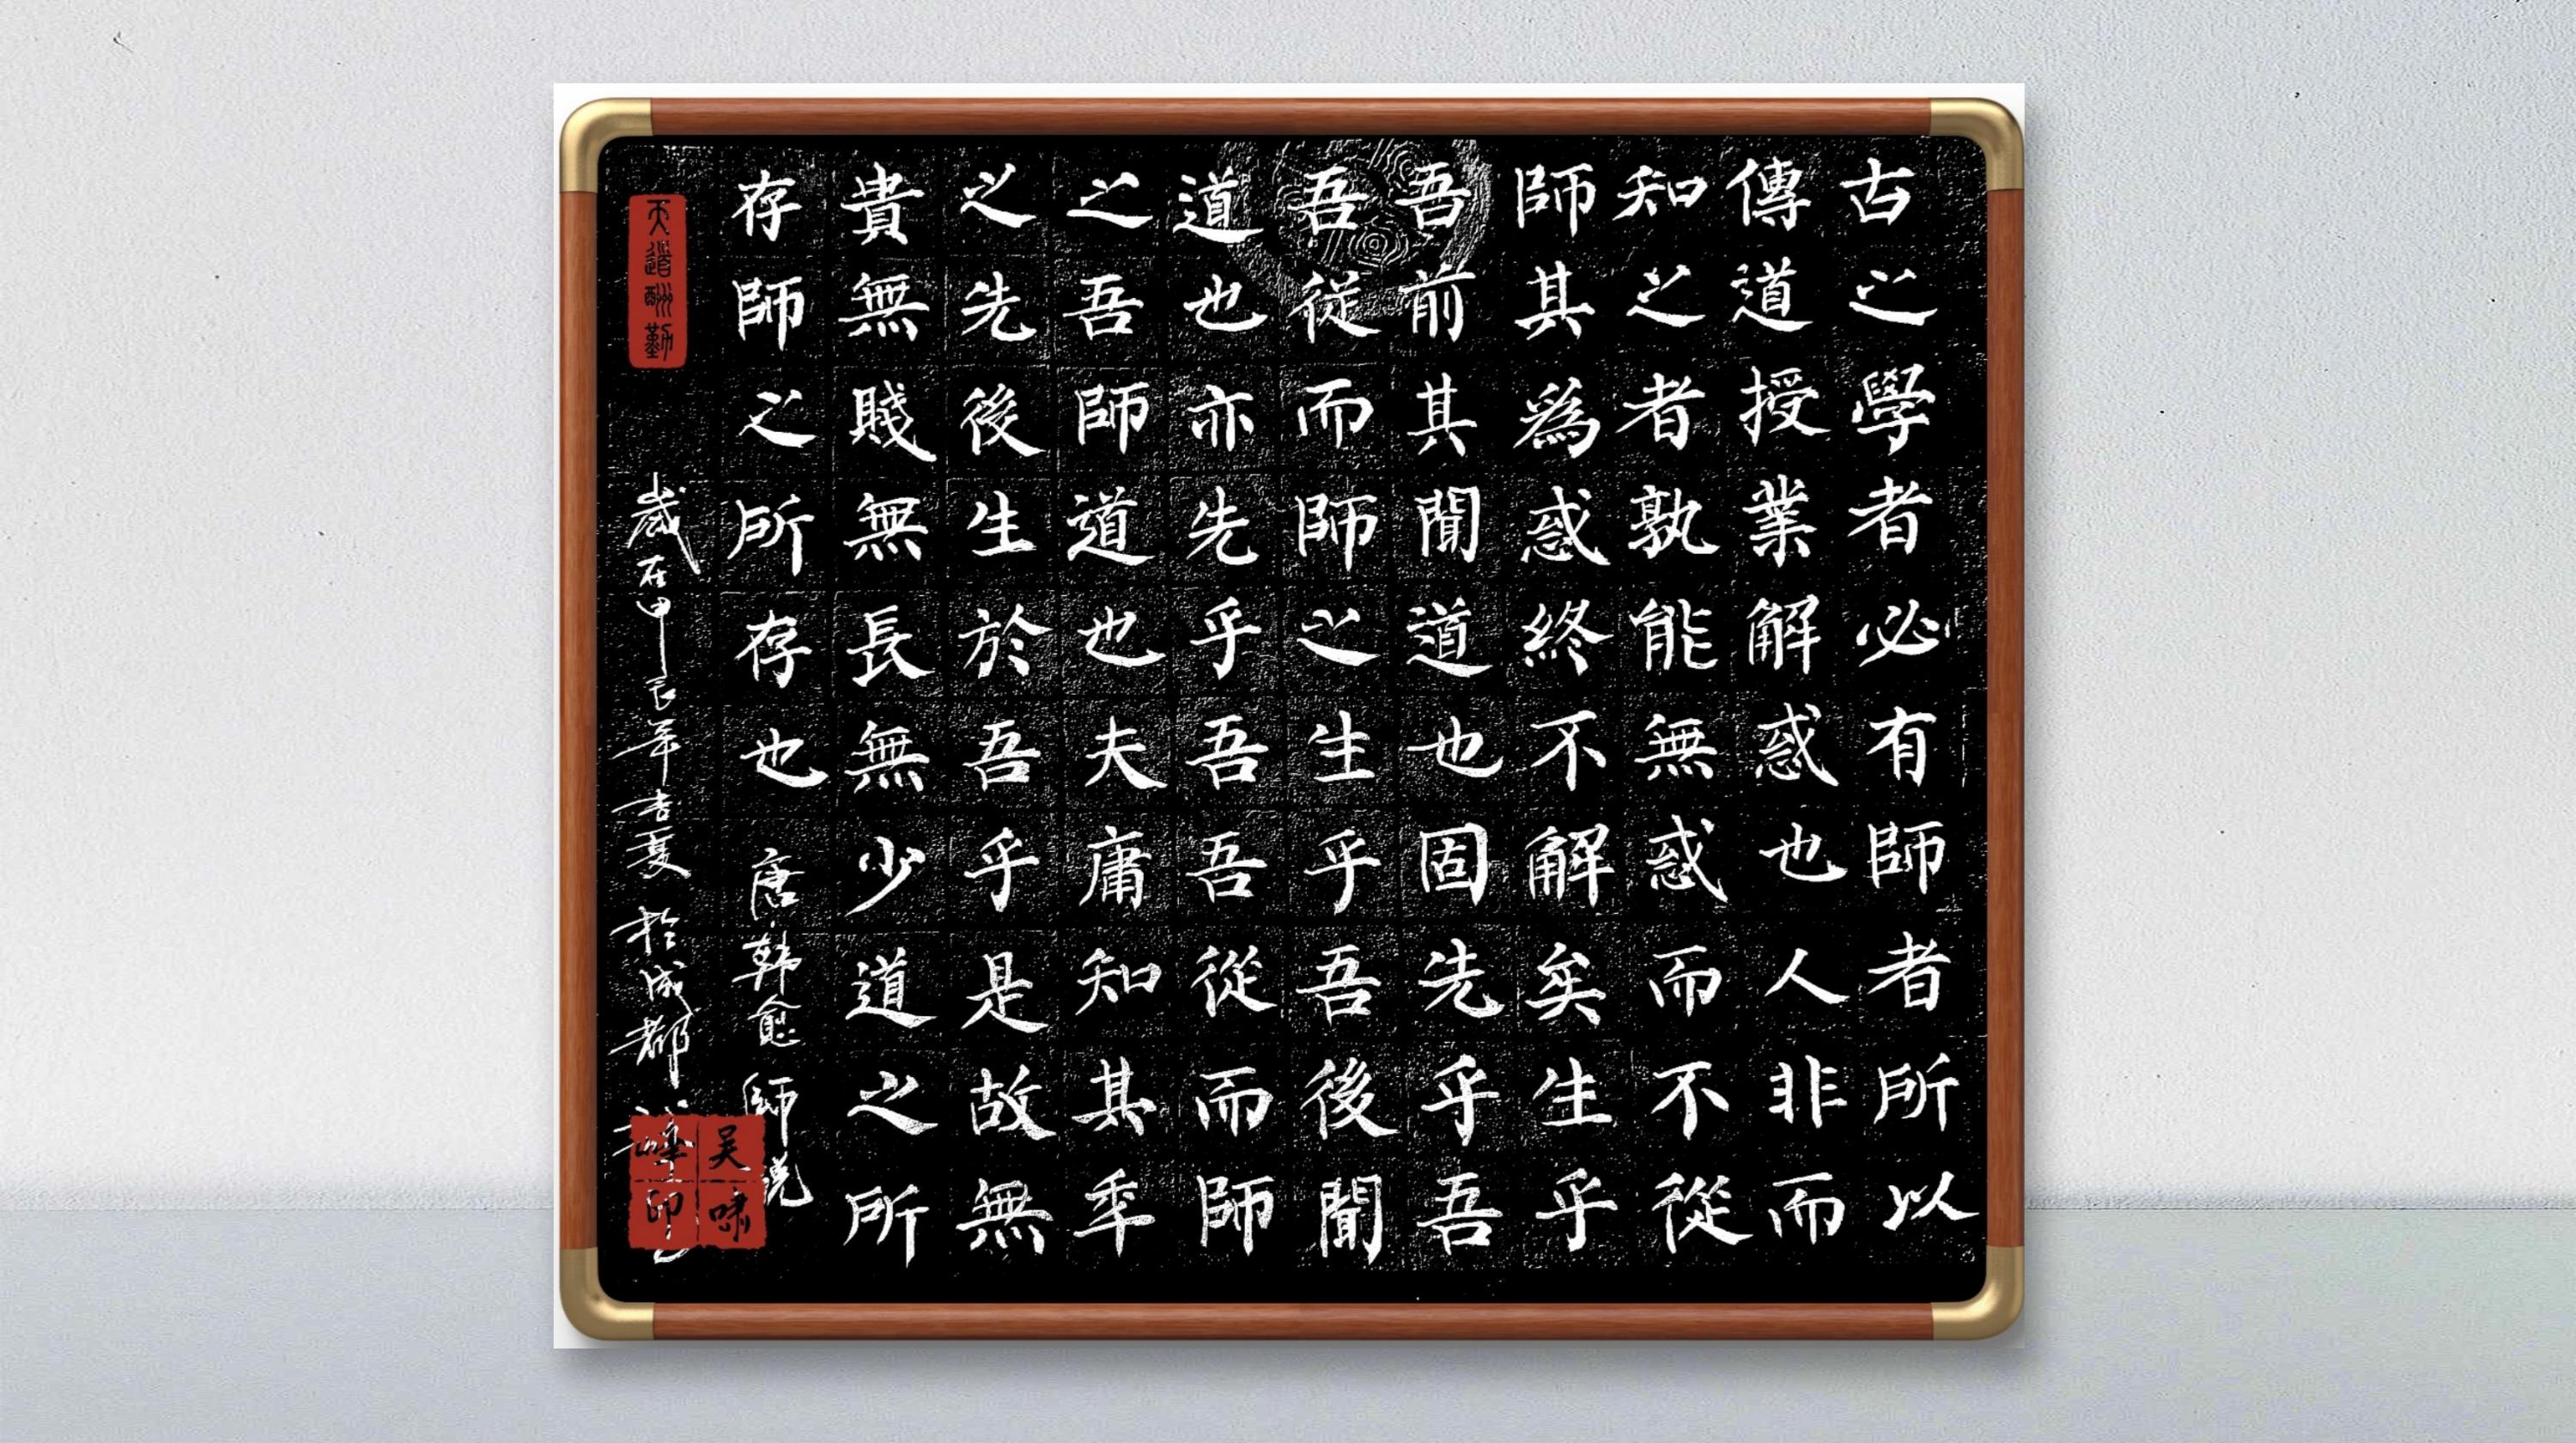 古之學者必有師者所以
傳道授業解惑也人非而
知之者孰能無惑而不從
師其爲惑終不解矣生乎
吾前其聞道也固先乎吾
吾從而師之生乎吾後聞
道也亦先乎吾吾從而師
之吾師道也夫庸知其秊
之先後生於吾乎是故無
貴無賤無長無少道之所
存師之所存也 唐韩愈師说
天道酬勤
歲在甲辰年吉夏於成都
吴啸峰印